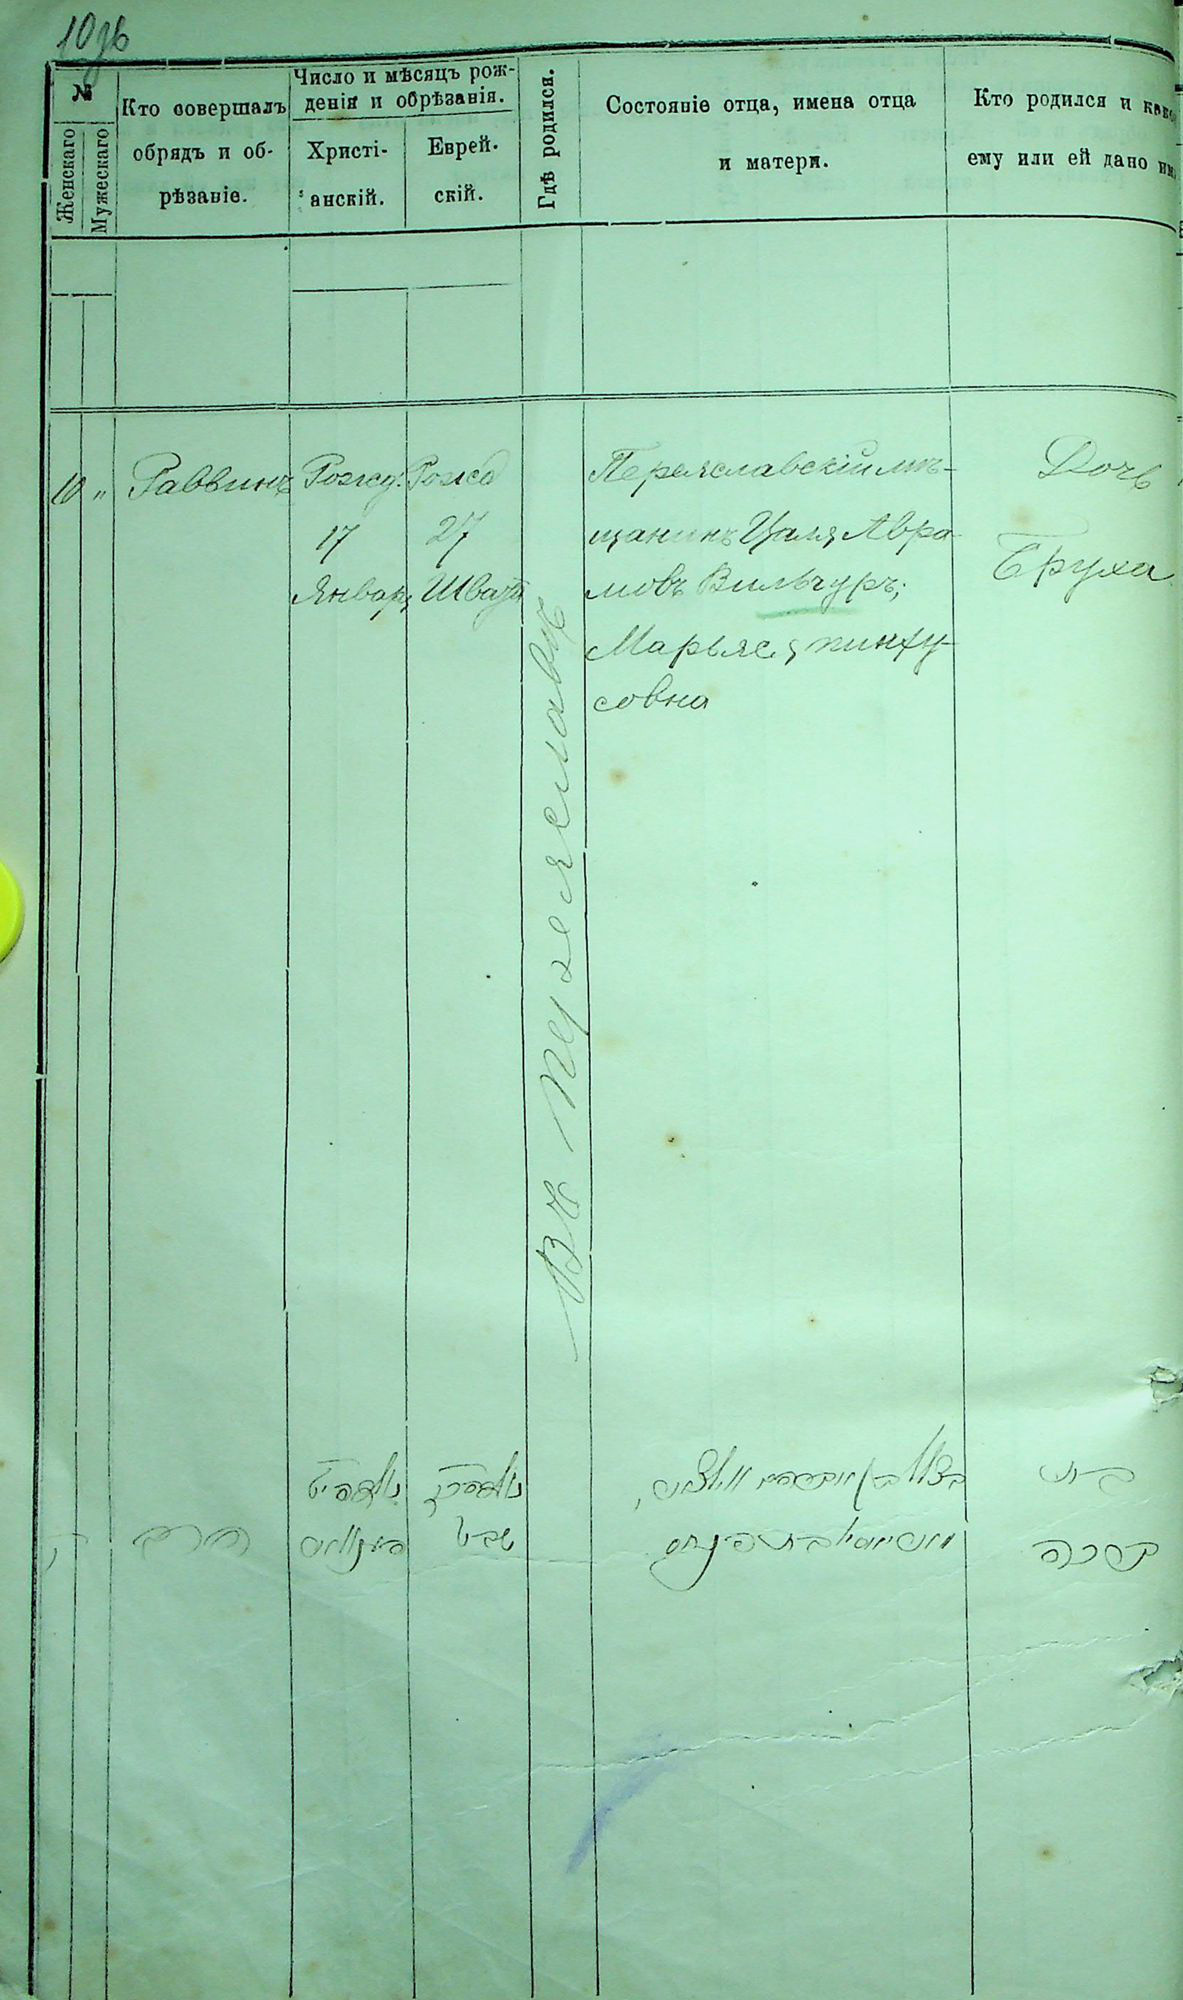 10 зв
№
Женскаго
Мужескаго
Кто совершалъ
обрядъ и об-
рѣзаніе.
Число и мѣсяцъ рож-
денія и обрѣзанія.
Христі-
анскій.
Еврей-
скій.
Гдѣ родился.
Состояніе отца, имена отца
и матери.
Кто родился и како
ему или ей дано им
10 "
Раввинъ
Рожд.
17
Январ
Рожд
27
Швата
Въ Переяславѣ
Переяславскій мѣ-
щанинъ Цаля Авра
мовъ Вильчуръ;
Марьяся пинху-
совна
Дочь
Бруха
הרב
שבט
בת
ברכה